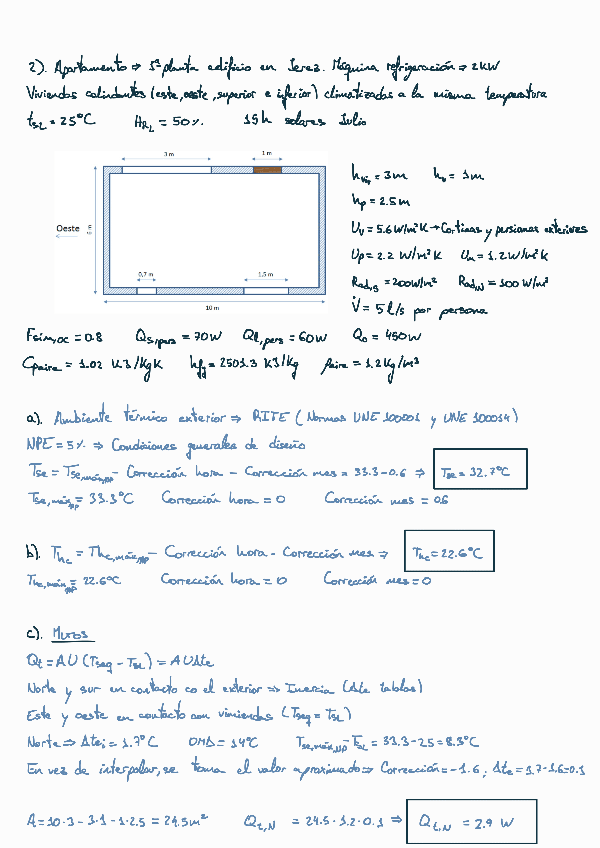 2). Apartamento ⇒ 5ª planta edificio en Jerez. Máquina refrigeración ⇒ 2KW
Viviendas colindantes (este, oeste, superior e inferior) climatizadas a la misma temperatura
tSL = 25ºC HRL = 50% 15h solares Julio
3 m
1 m
Oeste
6 m
0,7 m
1,5 m
10 m
hviv = 3m hv = 1m
hp = 2.5m
Uv = 5.6 W/m²K → Cortinas y persianas exteriores
Up = 2.2 W/m²K Um = 1.2 W/m²K
Rad,S = 200W/m² Rad,N = 100 W/m²
V̇ = 5 l/s por persona
Fsim,oc = 0.8 Qs,pers = 70W Ql,pers = 60W Qo = 450W
Cpaire = 1.02 KJ/KgK hfg = 2501.3 KJ/Kg ρaire = 1.2Kg/m³
a). Ambiente térmico exterior ⇒ RITE (Normas UNE 100001 y UNE 100014)
NPE = 5% ⇒ Condiciones generales de diseño
Tse = Tse,máx,pp - Corrección hora - Corrección mes = 33.3 - 0.6 ⇒ Tse = 32.7ºC
Tse,máx,pp = 33.3ºC Corrección hora = 0 Corrección mes = 0.6
b). Thc = Thc,máx,pp - Corrección hora - Corrección mes ⇒ Thc = 22.6ºC
Thc,máx,pp = 22.6ºC Corrección hora = 0 Corrección mes = 0
c). Muros
Qt = AU (Tseq - TSL) = AUΔte
Norte y sur en contacto co el exterior ⇒ Inercia (Δte tablas)
Este y oeste en contacto con viviendas (Tseq = TSL)
Norte ⇒ Δtei = 1.7ºC OMD = 14ºC Tse,máx,pp - TSL = 33.3 - 25 = 8.3ºC
En vez de interpolar, se toma el valor aproximado ⇒ Corrección = -1.6 ; Δte = 1.7 - 1.6 = 0.1
A = 10·3 - 3·1 - 1·2.5 = 24.5m² Qt,N = 24.5·1.2·0.1 ⇒ Qt,N = 2.9 W